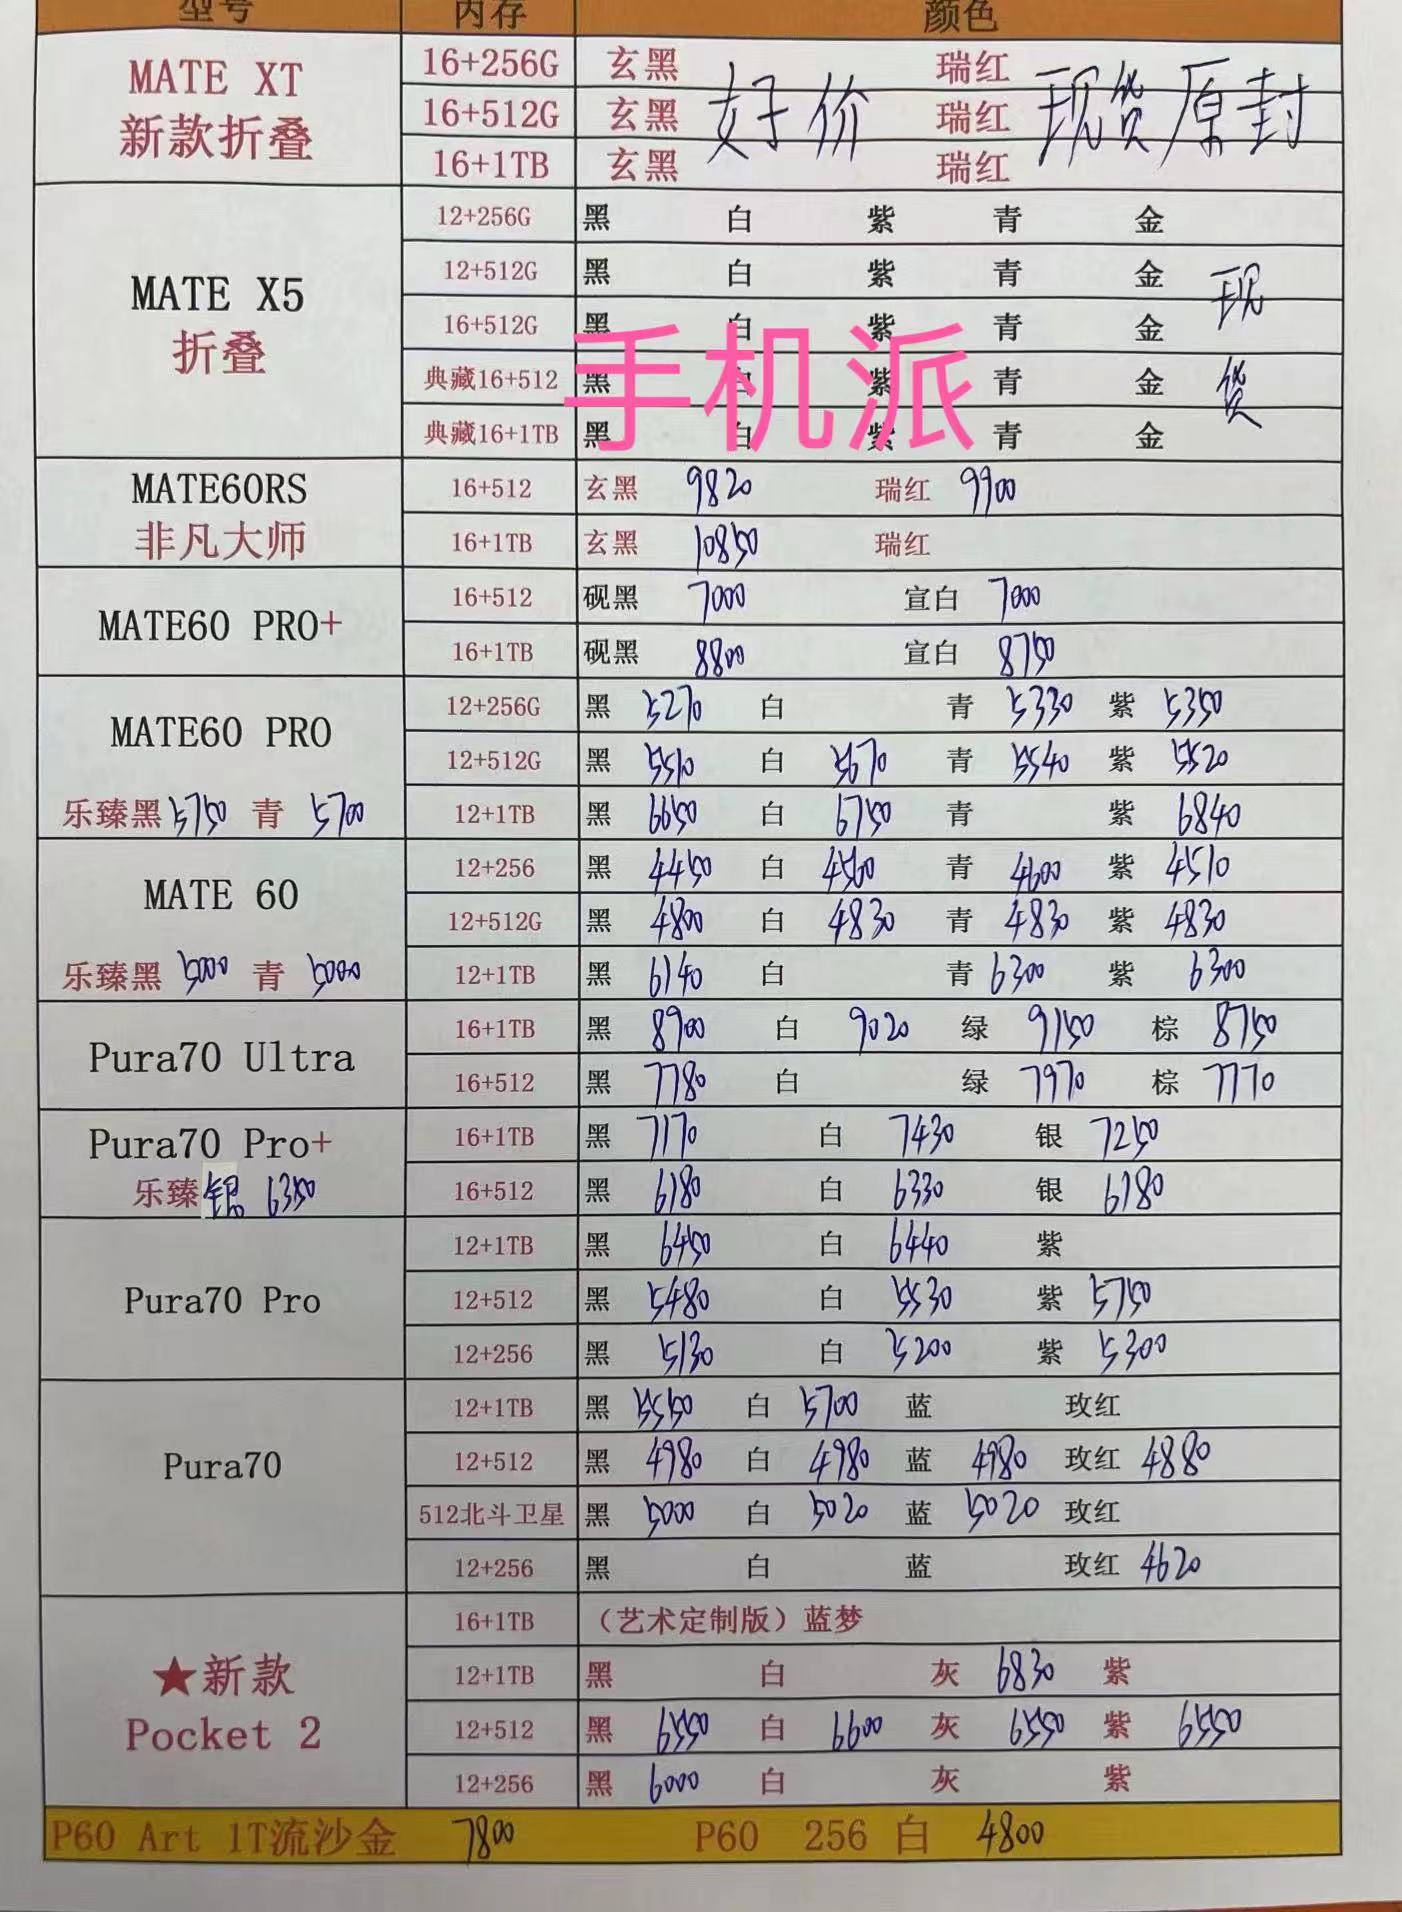 型号 内存 颜色
MATE XT 新款折叠
16+256G 玄黑 瑞红
16+512G 玄黑 好价 瑞红 现货原封
16+1TB 玄黑 瑞红
MATE X5 折叠
12+256G 黑 白 紫 青 金
12+512G 黑 白 紫 青 金 现
16+512G 黑 白 紫 青 金
手机派
典藏16+512 黑 白 紫 青 金 货
典藏16+1TB 黑 白 紫 青 金
MATE60RS 非凡大师
16+512 玄黑 9820 瑞红 9900
16+1TB 玄黑 10850 瑞红
MATE60 PRO+
16+512 砚黑 7000 宣白 7000
16+1TB 砚黑 8800 宣白 8750
MATE60 PRO
12+256G 黑 5270 白 青 5330 紫 5350
12+512G 黑 5510 白 5670 青 5540 紫 5520
乐臻黑 5750 青 5700
12+1TB 黑 6650 白 6750 青 紫 6840
MATE 60
12+256 黑 4450 白 4560 青 4600 紫 4510
12+512G 黑 4800 白 4830 青 4830 紫 4830
乐臻黑 5000 青 5000
12+1TB 黑 6140 白 青 6300 紫 6300
Pura70 Ultra
16+1TB 黑 8900 白 9020 绿 9150 棕 8750
16+512 黑 7780 白 绿 7970 棕 7770
Pura70 Pro+
16+1TB 黑 7170 白 7430 银 7250
乐臻银 6350
16+512 黑 6180 白 6330 银 6180
Pura70 Pro
12+1TB 黑 6450 白 6440 紫
12+512 黑 5480 白 5530 紫 5750
12+256 黑 5130 白 5200 紫 5300
Pura70
12+1TB 黑 5550 白 5700 蓝 玫红
12+512 黑 4980 白 4980 蓝 4980 玫红 4880
512北斗卫星 黑 5000 白 5020 蓝 5020 玫红
12+256 黑 白 蓝 玫红 4620
★新款 Pocket 2
16+1TB （艺术定制版）蓝梦
12+1TB 黑 白 灰 6830 紫
12+512 黑 6550 白 6600 灰 6550 紫 6550
12+256 黑 6000 白 灰 紫
P60 Art 1T流沙金 7800 P60 256 白 4800